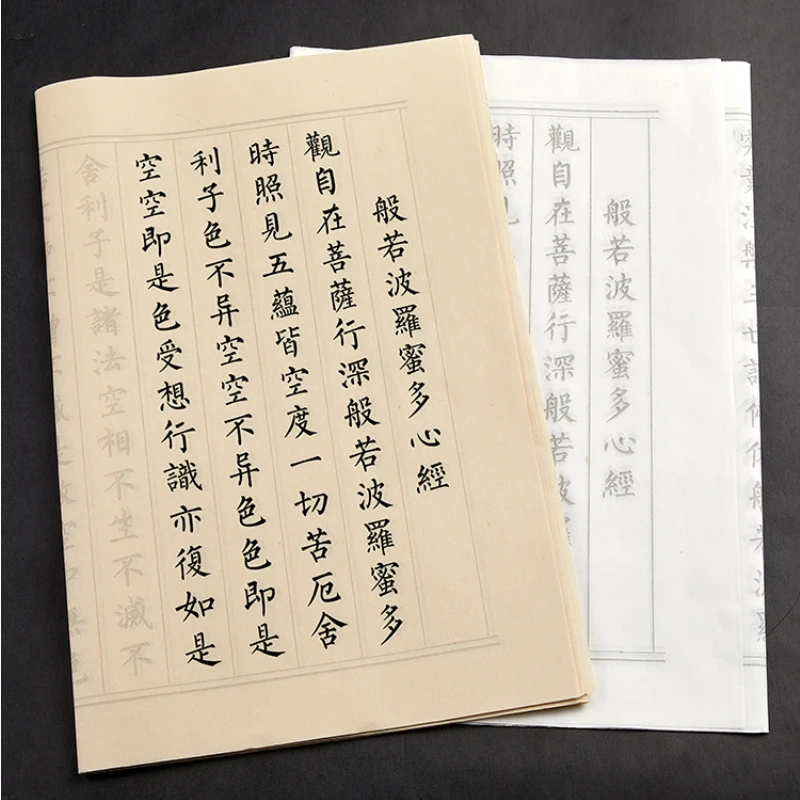 般若波羅蜜多心經
觀自在菩薩行深般若波羅蜜多
時照見五蘊皆空度一切苦厄舍
利子色不异空空不异色色即是
空空即是色受想行識亦復如是
舍利子是諸法空相不生不滅不
般若波羅蜜多心經
觀自在菩薩行深般若波羅
時照見